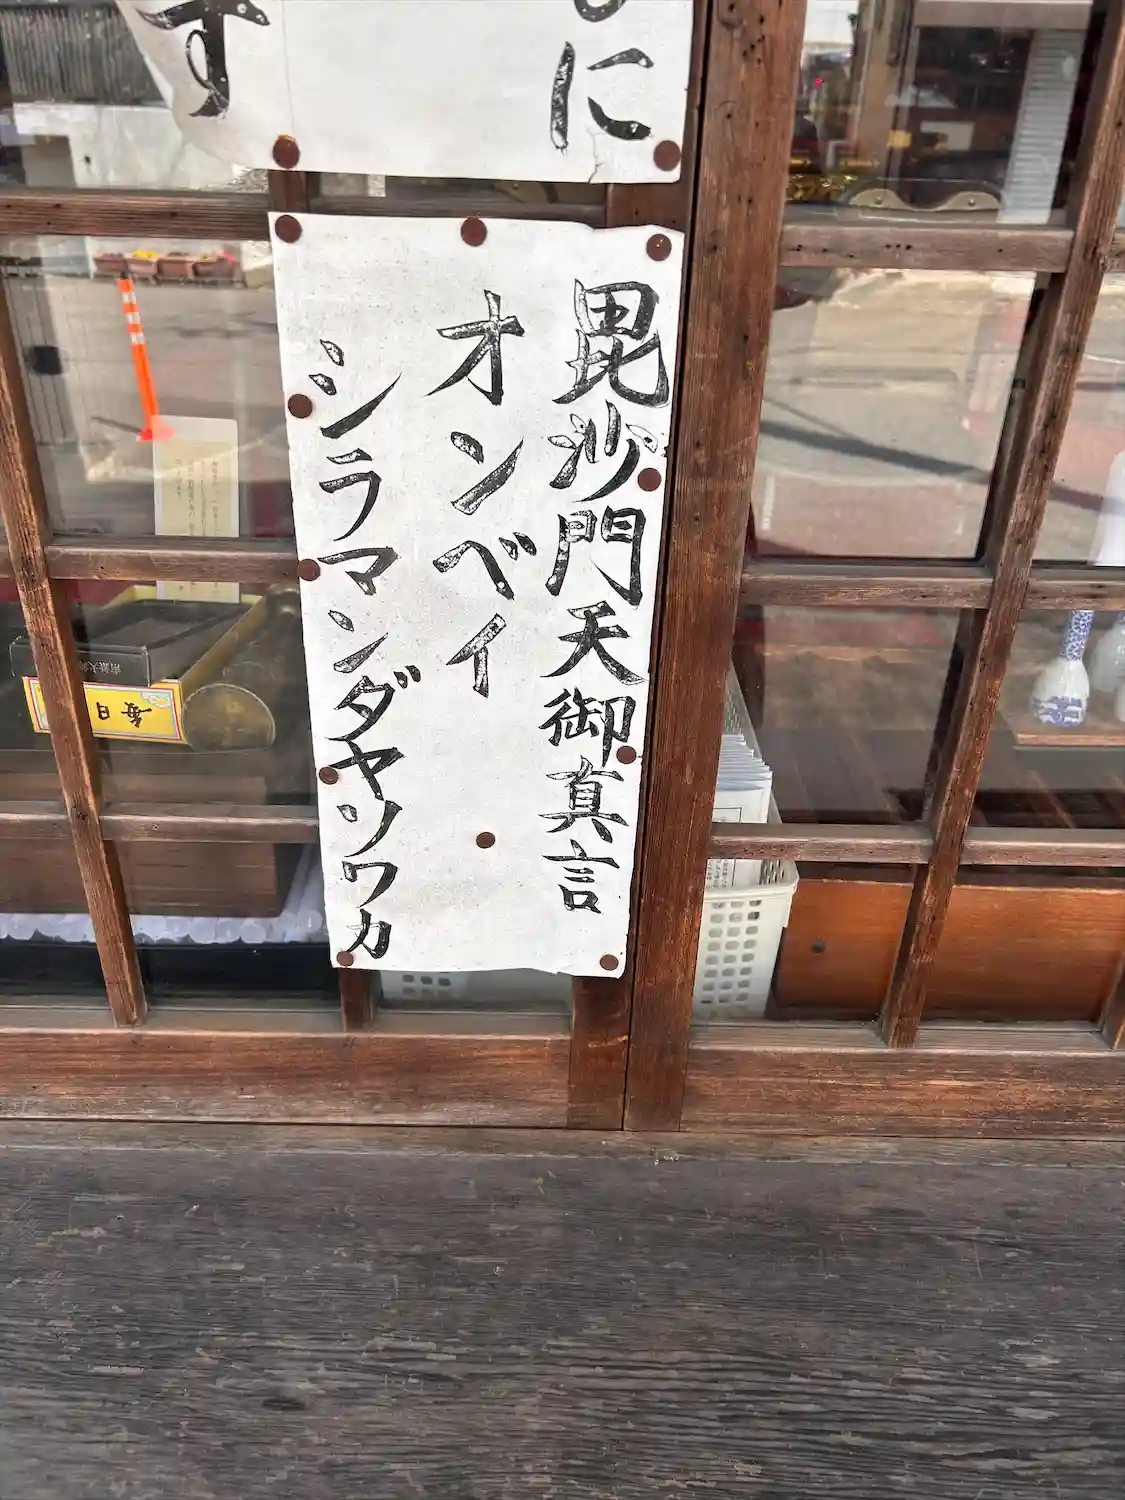 に
す
毘沙門天御真言
オンベイ
シラマンダヤソワカ
毎日